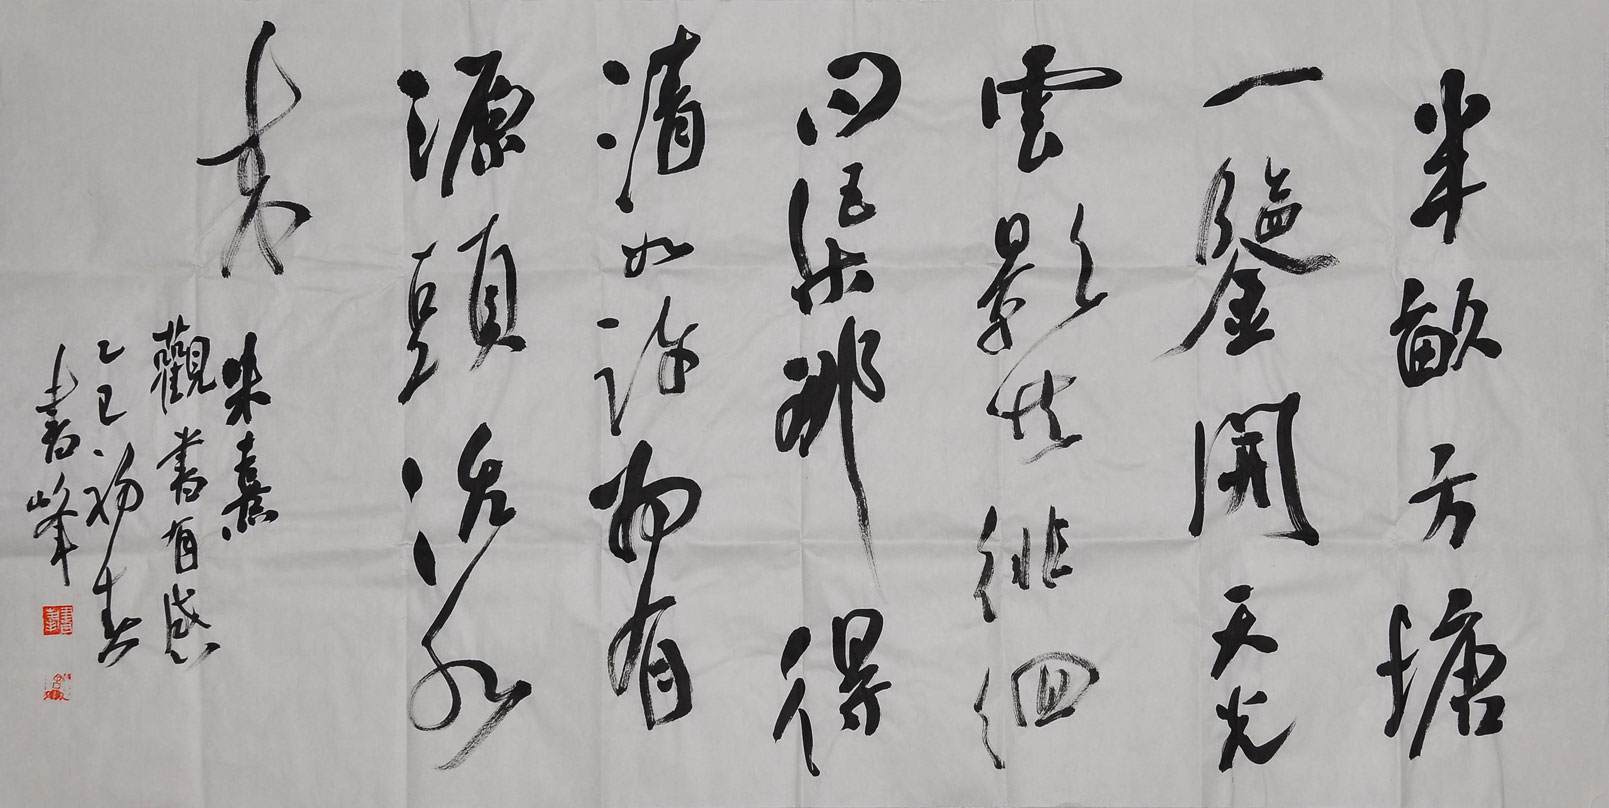 半畝方塘
一鑒開天光
雲影共徘徊
問渠那得
清如許為有
源頭活水
来
朱熹
觀書有感
乙巳初春
書峰